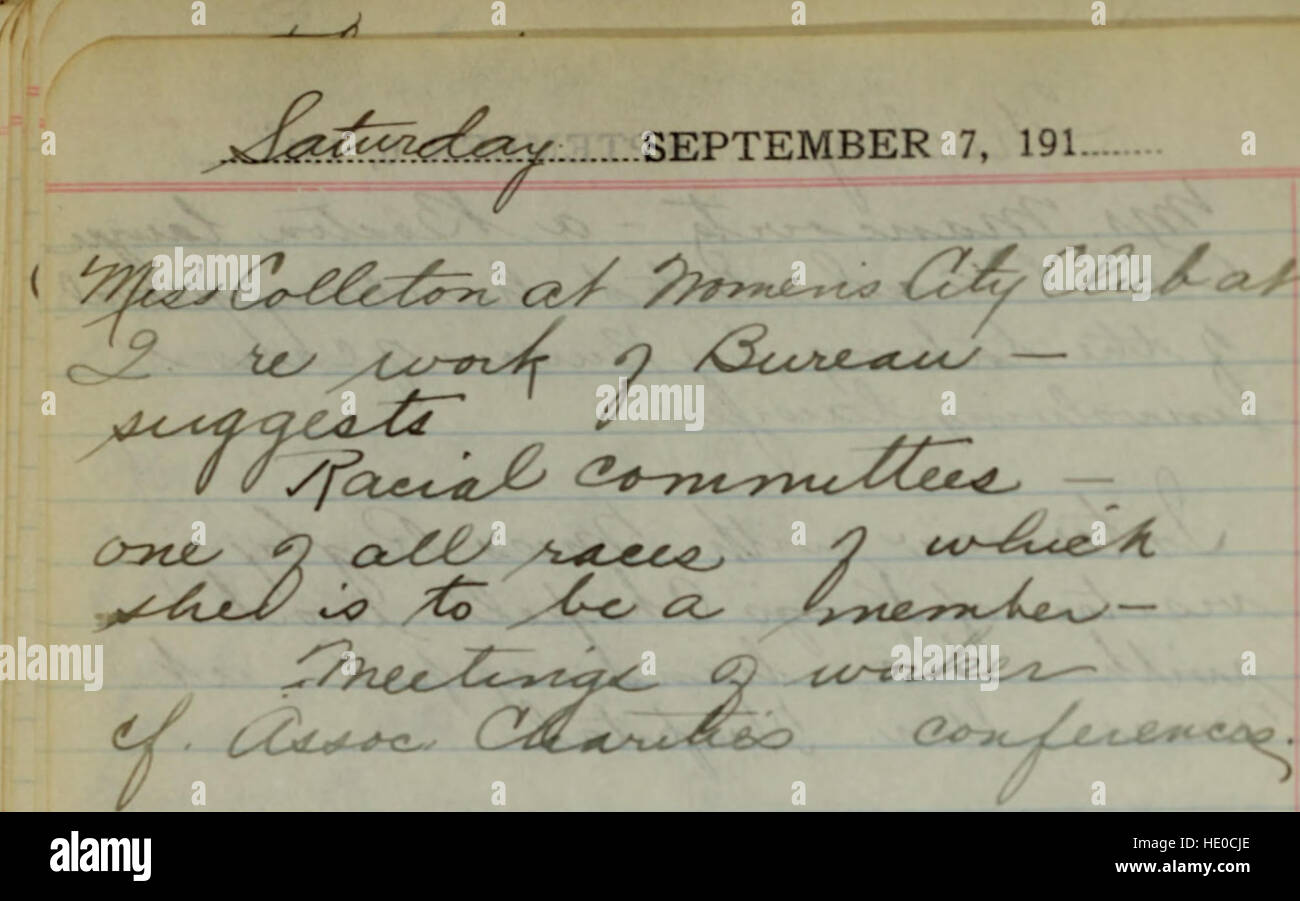 Saturday SEPTEMBER 7, 191
Miss Colleton at Women's City Club at
2 re work of Bureau —
suggests
Racial committees —
one of all races of which
she is to be a member —
Meetings of worker
cf. Assoc. Charities conferences.
alamy
alamy
Image ID: HE0CJE
www.alamy.com